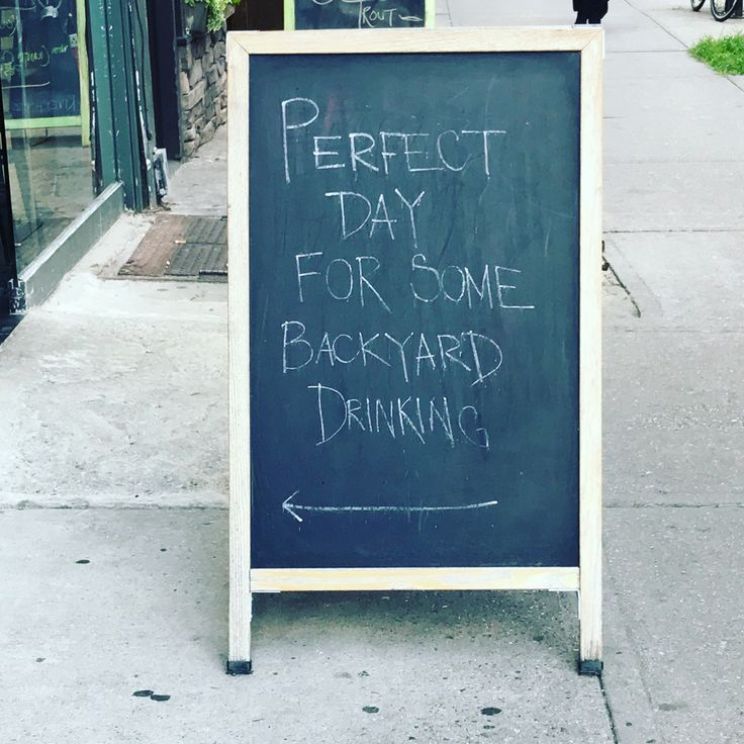 ROUT
PERFECT
DAY
FOR SOME
BACKYARD
DRINKING